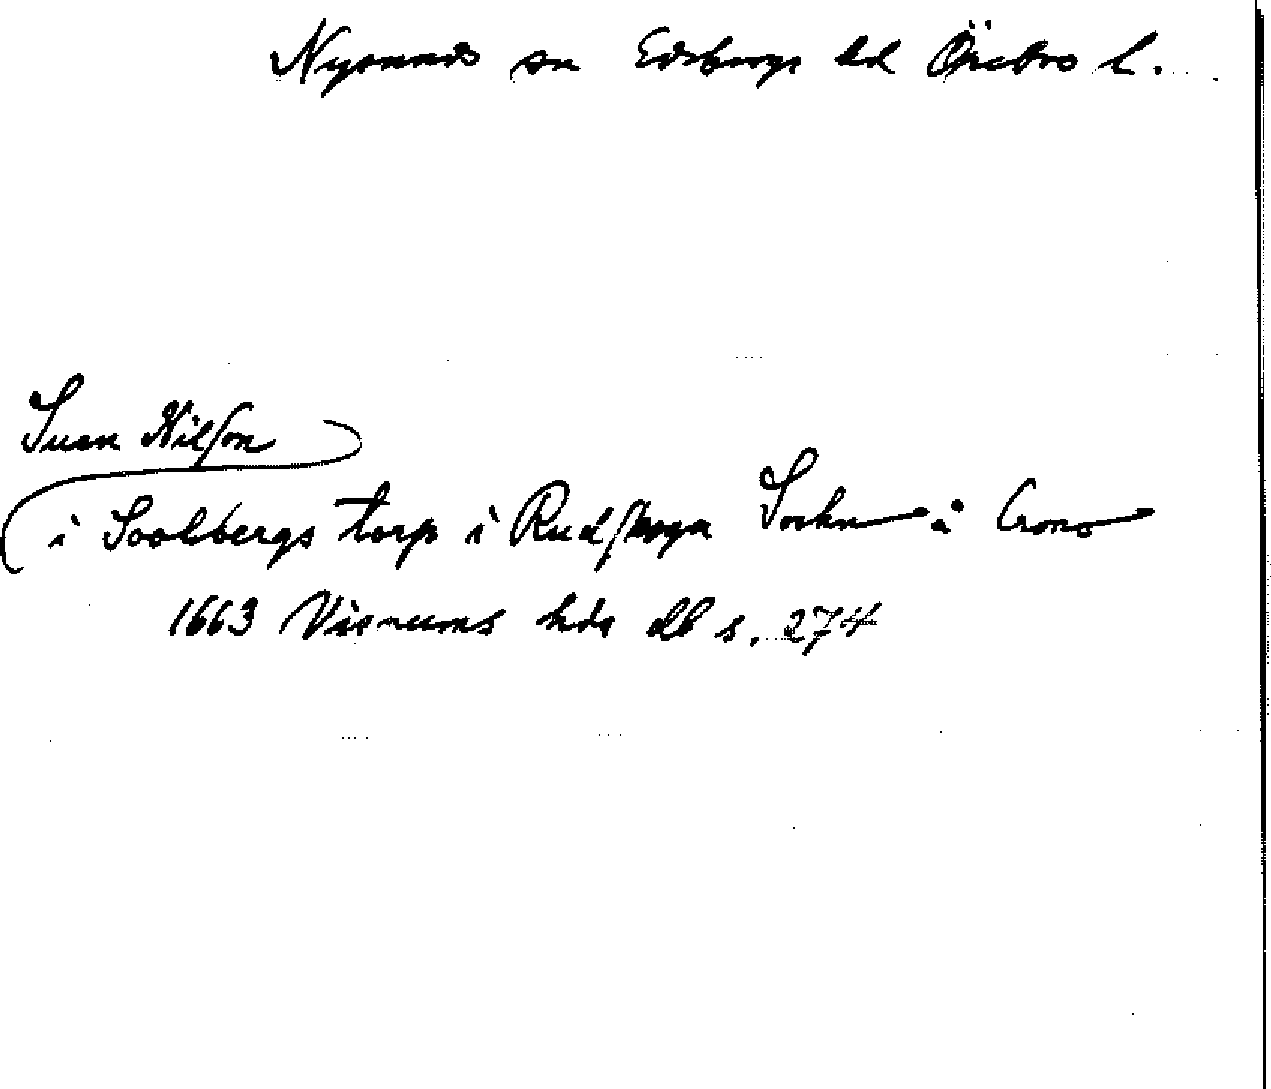 Nysunds sn Edsbergs hd Örebro l.
Suen Nilsson
i Soolbergs torp i Rudskoga Sochn å Crono
1663 Visnums hds db s. 274